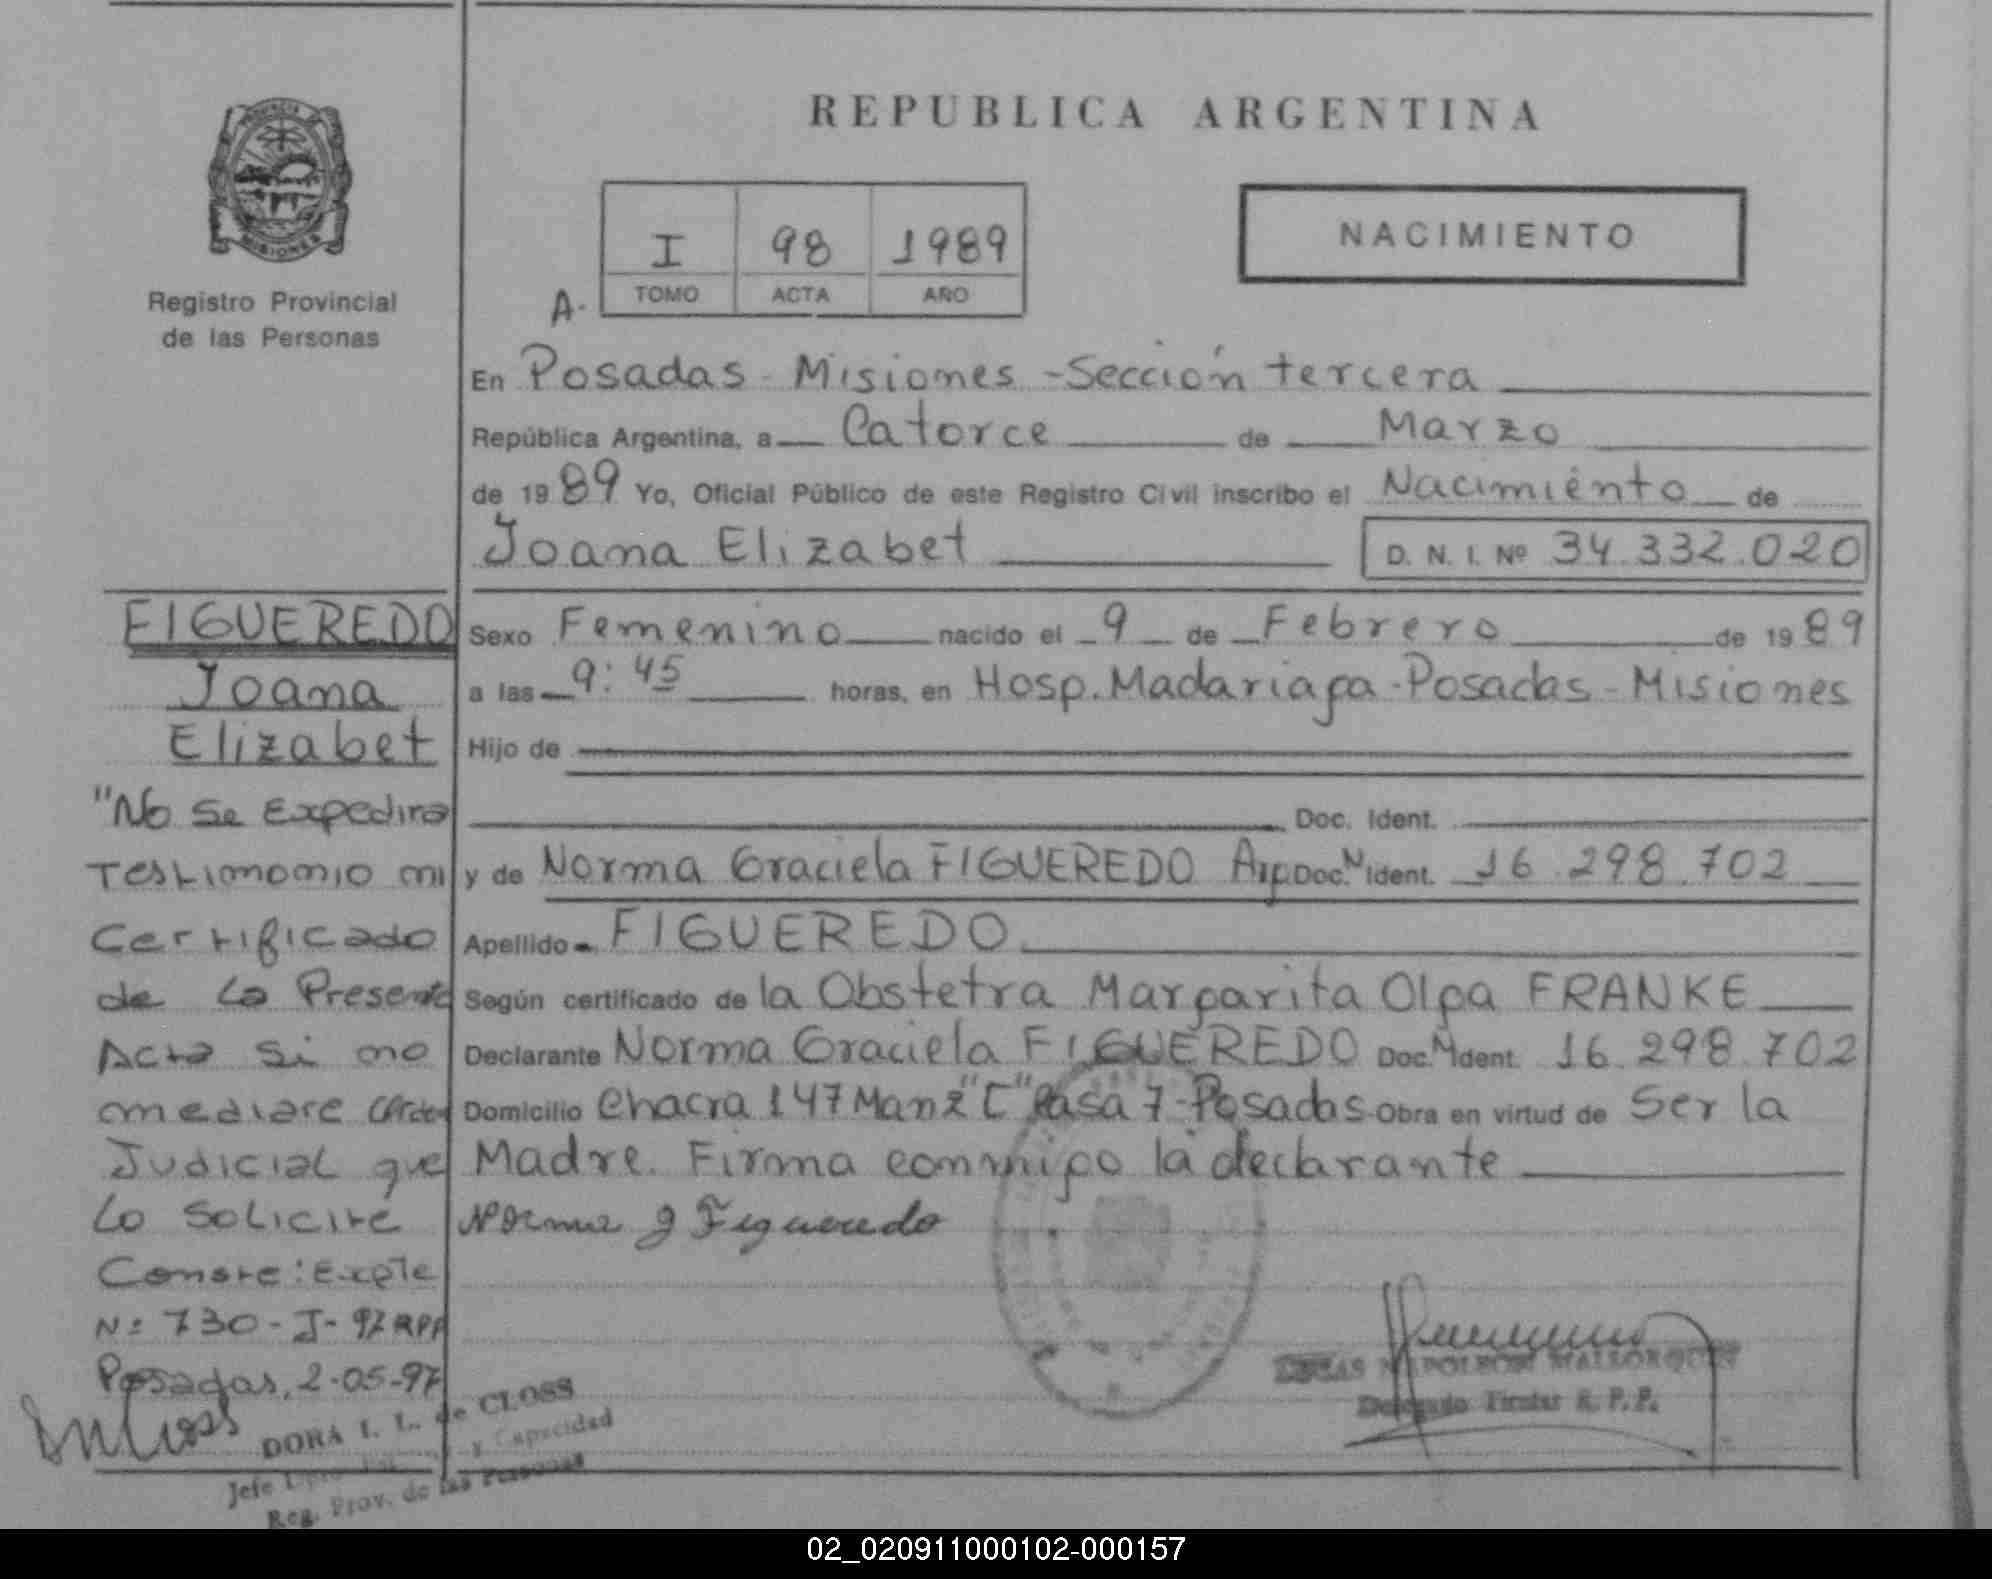 REPUBLICA ARGENTINA
PROVINCIA DE
MISIONES
Registro Provincial
de las Personas
I 98 1989
A. TOMO ACTA AÑO
NACIMIENTO
En Posadas - Misiones - Sección tercera
República Argentina, a Catorce de Marzo
de 1989 Yo, Oficial Público de este Registro Civil inscribo el Nacimiento de
Joana Elizabet D. N. I. Nº 34.332.020
Sexo Femenino nacido el 9 de Febrero de 1989
a las 9:45 horas, en Hosp. Madariaga - Posadas - Misiones
Hijo de
Doc. Ident.
y de Norma Graciela FIGUEREDO Arg. Doc. N Ident. 16.298.702
Apellido FIGUEREDO
Según certificado de la Obstetra Margarita Olga FRANKE
Declarante Norma Graciela FIGUEREDO Doc. N Ident. 16.298.702
Domicilio Chacra 147 Manz "C" Casa 7 - Posadas. Obra en virtud de Ser la
Madre. Firma conmigo la declarante
Norma G Figueredo
FIGUEREDO
Joana
Elizabet
"No se Expedira
Testimonio ni
Certificado
de La Presente
Acta Si no
mediare Orden
Judicial que
Lo Solicite
Conste: Expte
Nº 730-J-97 RPP
Posadas, 2-05-97
DORA I. L. de CLOSS
Jefe y Capacidad
Reg. Prov. de las Personas
NAPOLEON MALLORQUIN
Delegado Titular R. P. P.
02_020911000102-000157